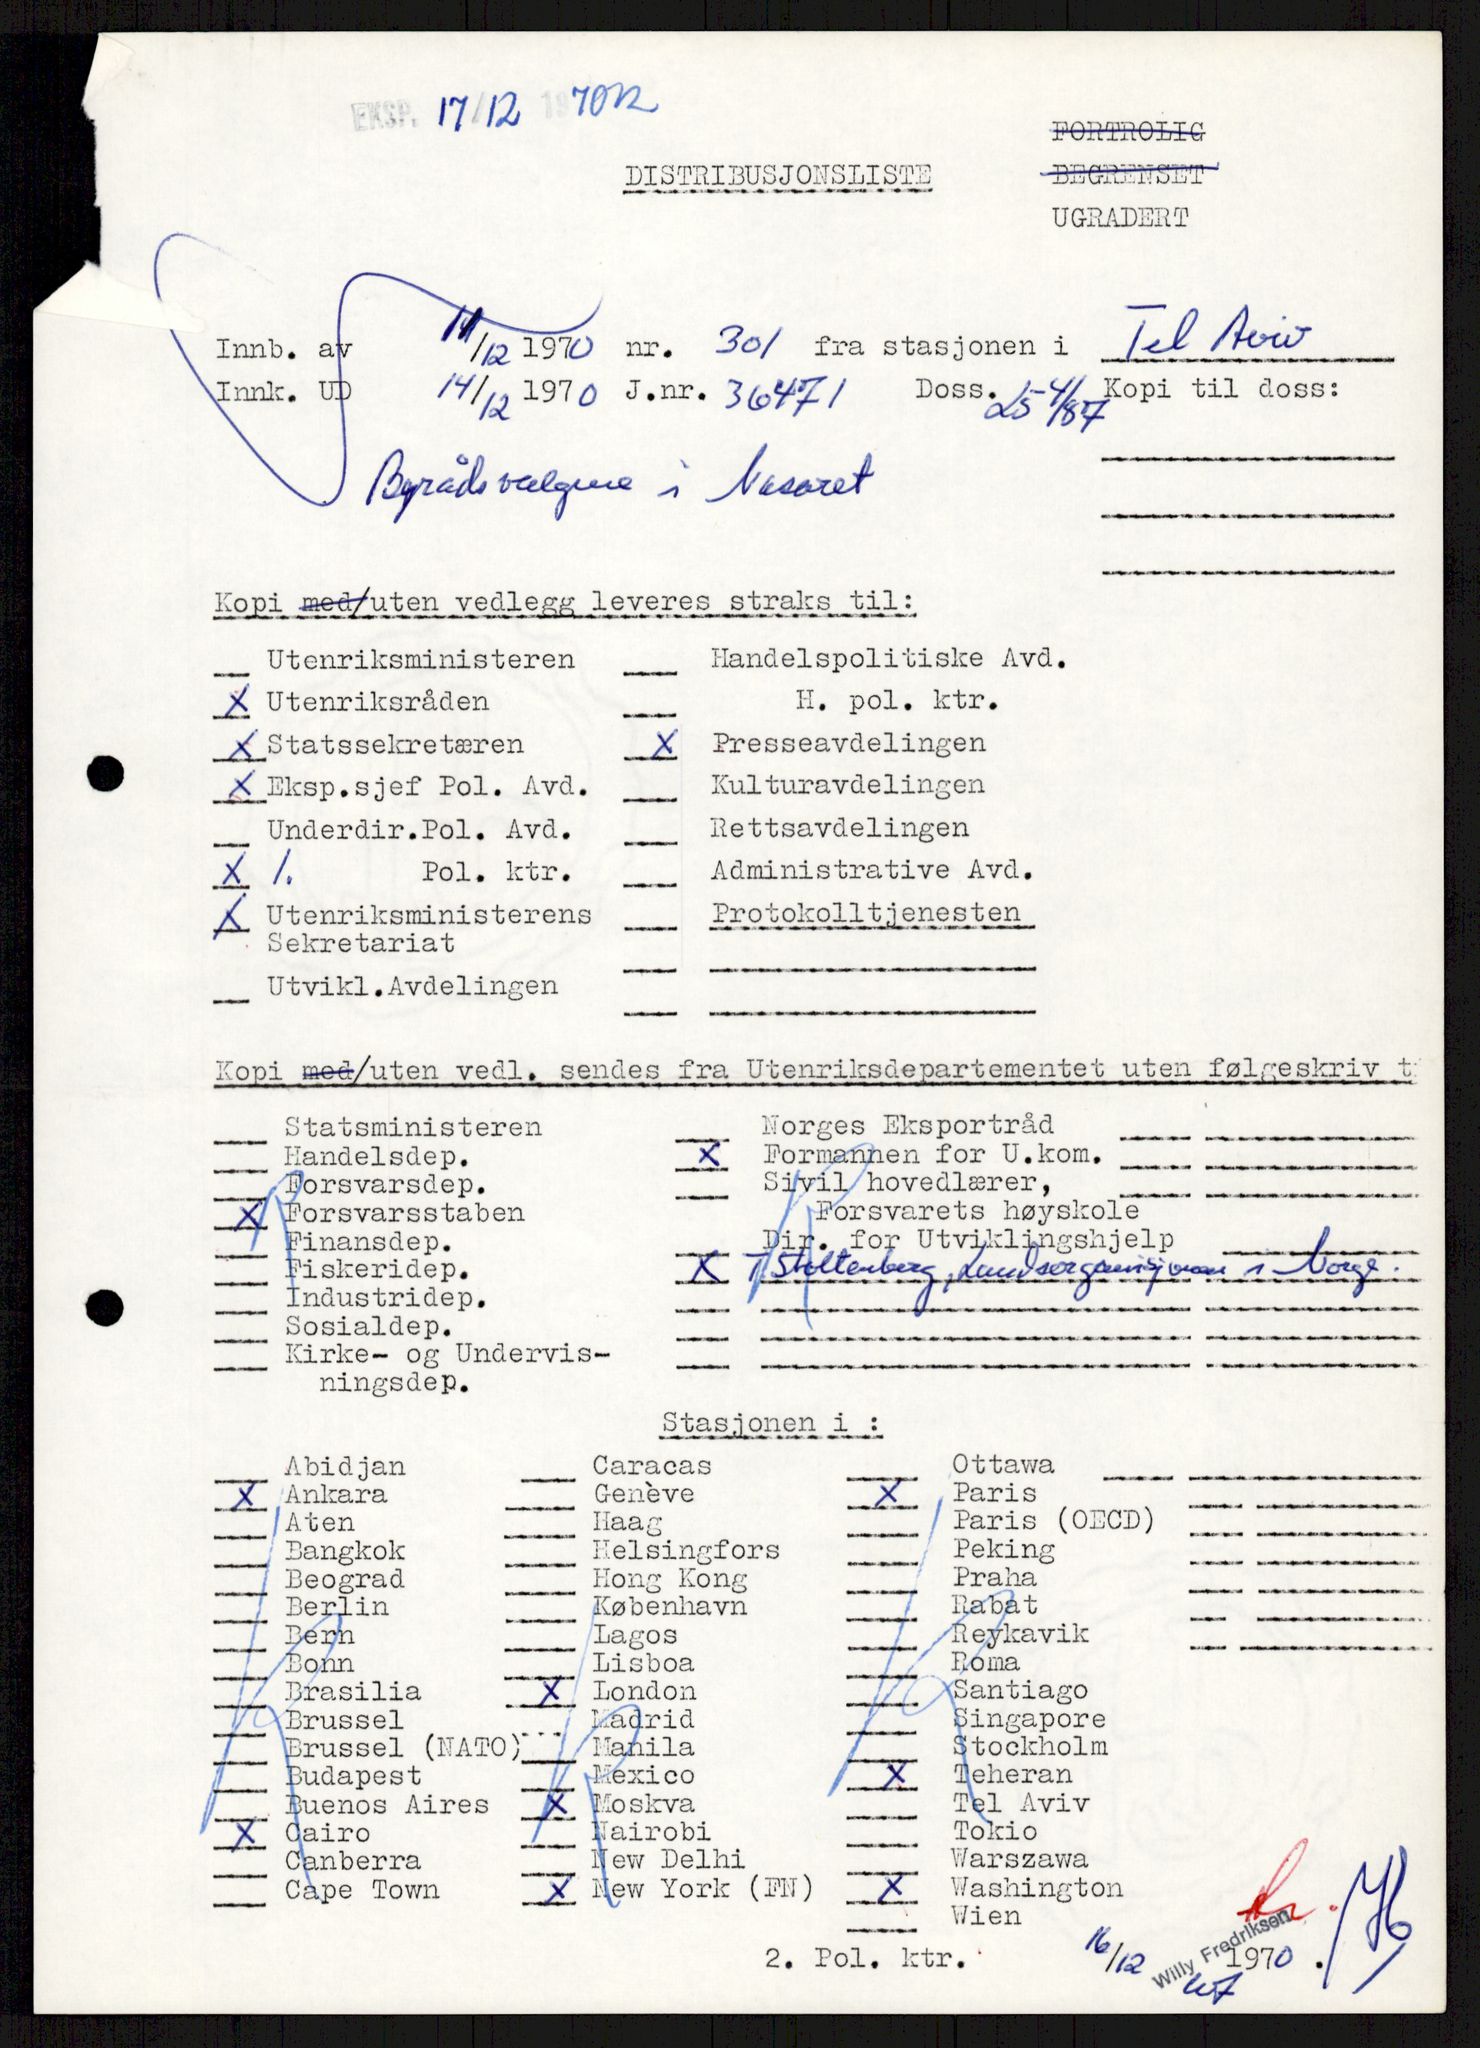 EKSP. 17/12 1970
FORTROLIG
DISTRIBUSJONSLISTE
BEGRENSET
UGRADERT
Innb. av 11/12 1970 nr. 301 fra stasjonen i Tel Aviv
Innk. UD 14/12 1970 J.nr. 36471 Doss. 25 4/87 Kopi til doss:
Byrådsvalgene i Nasaret
Kopi med/uten vedlegg leveres straks til:
Utenriksministeren Handelspolitiske Avd.
X Utenriksråden H. pol. ktr.
X Statssekretæren X Presseavdelingen
X Eksp.sjef Pol. Avd. Kulturavdelingen
Underdir.Pol. Avd. Rettsavdelingen
X 1. Pol. ktr. Administrative Avd.
X Utenriksministerens Protokolltjenesten
Sekretariat
Utvikl.Avdelingen
Kopi med/uten vedl. sendes fra Utenriksdepartementet uten følgeskriv t
Statsministeren Norges Eksportråd
Handelsdep. X Formannen for U.kom.
Forsvarsdep. Sivil hovedlærer,
X Forsvarsstaben Forsvarets høyskole
Finansdep. Dir. for Utviklingshjelp
Fiskeridep. X T. Stoltenberg, Landsorganisjonen i Norge.
Industridep.
Sosialdep.
Kirke- og Undervis-
ningsdep.
Stasjonen i :
Abidjan Caracas Ottawa
X Ankara Genève X Paris
Aten Haag Paris (OECD)
Bangkok Helsingfors Peking
Beograd Hong Kong Praha
Berlin København Rabat
Bern Lagos Reykavik
Bonn Lisboa Roma
Brasilia X London Santiago
Brussel Madrid Singapore
Brussel (NATO) Manila Stockholm
Budapest Mexico X Teheran
Buenos Aires X Moskva Tel Aviv
X Cairo Nairobi Tokio
Canberra New Delhi Warszawa
Cape Town X New York (FN) X Washington
Wien
2. Pol. ktr. 16/12 1970.
Willy Fredriksen